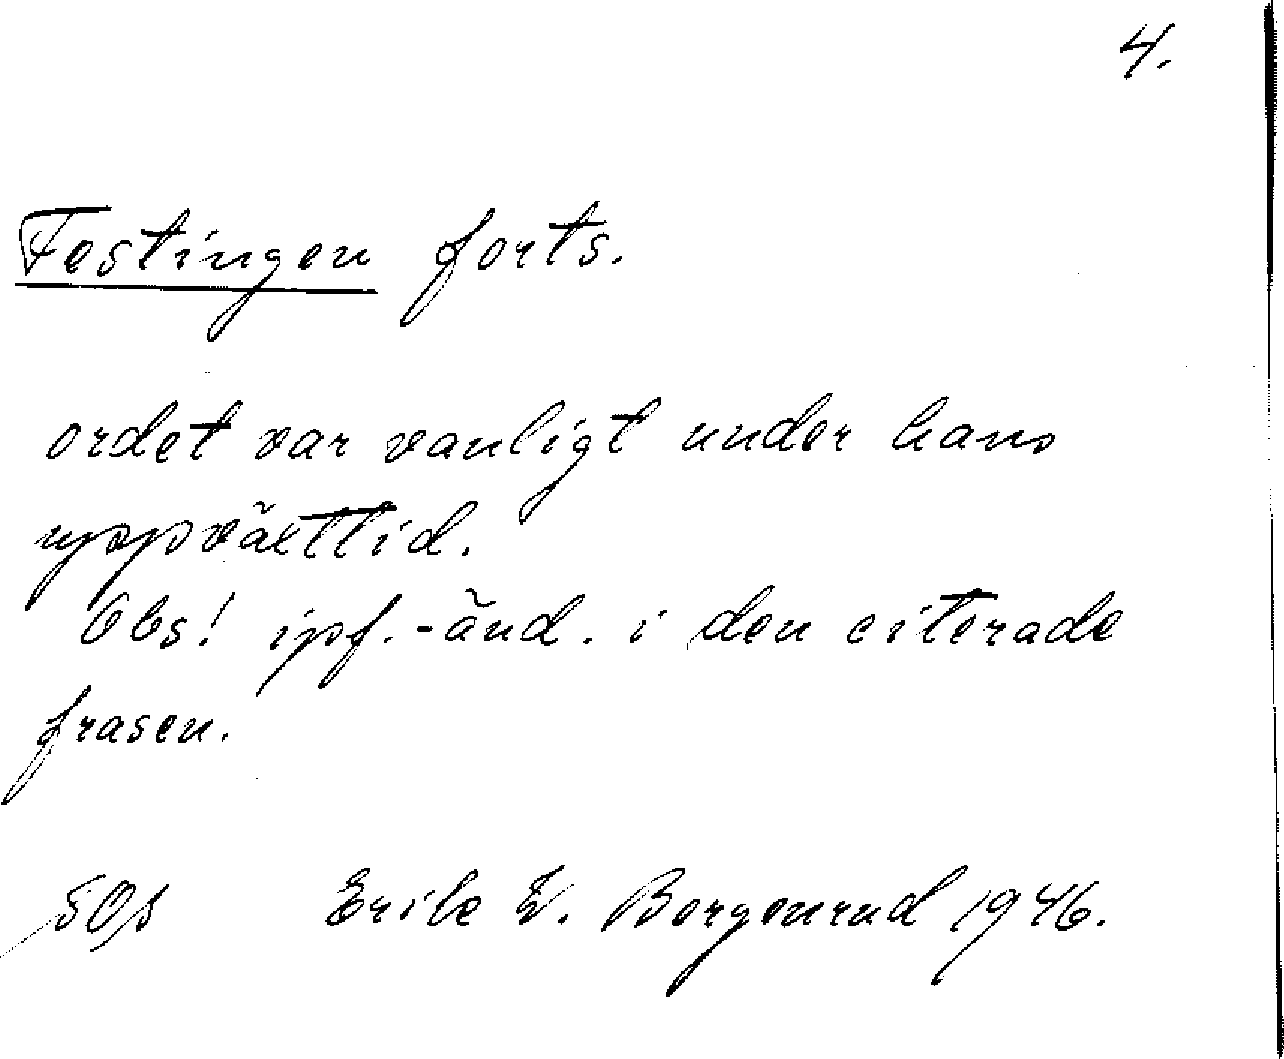 4.
Festingen forts.
ordet var vanligt under hans
uppväxttid.
Obs! ipf.-änd. i den citerade
frasen.
Erik W. Borgenrud 1946.